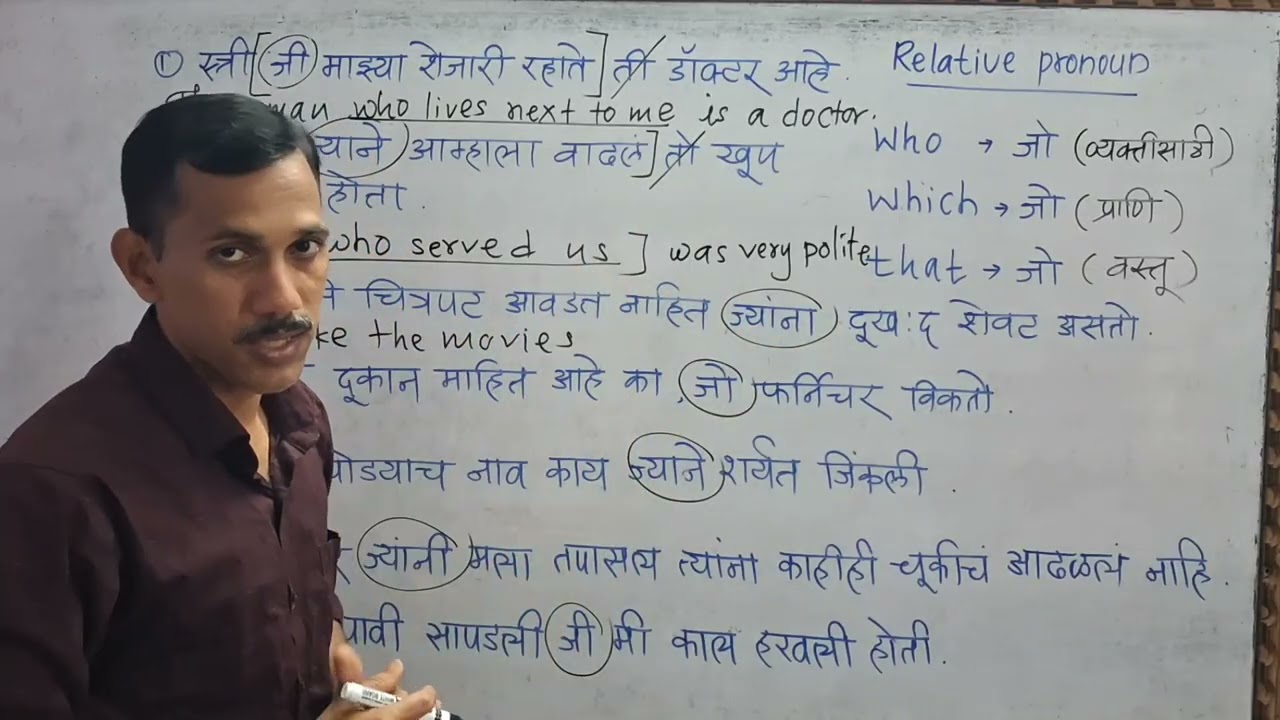 ① स्त्री [जी माझ्या शेजारी रहाते] ती डॉक्टर आहे.
man who lives next to me is a doctor.
याने) आम्हाला वाढलं] तो खूप
होता.
who served us] was very polite
चित्रपट आवडत नाहित (ज्यांना) दूख:द शेवट असतो.
ke the movies
दूकान माहित आहे का, (जो) फर्निचर विकतो.
नाव काय ज्याने शर्यत जिंकली.
(ज्यांनी) मला तपासल त्यांना काहीही चूकीचं आढळलं नाहि.
सापडली (जी) मी काल हरवली होती.
Relative pronoun
Who → जो (व्यक्तीसाठी)
Which → जो (प्राणि)
that → जो (वस्तू)